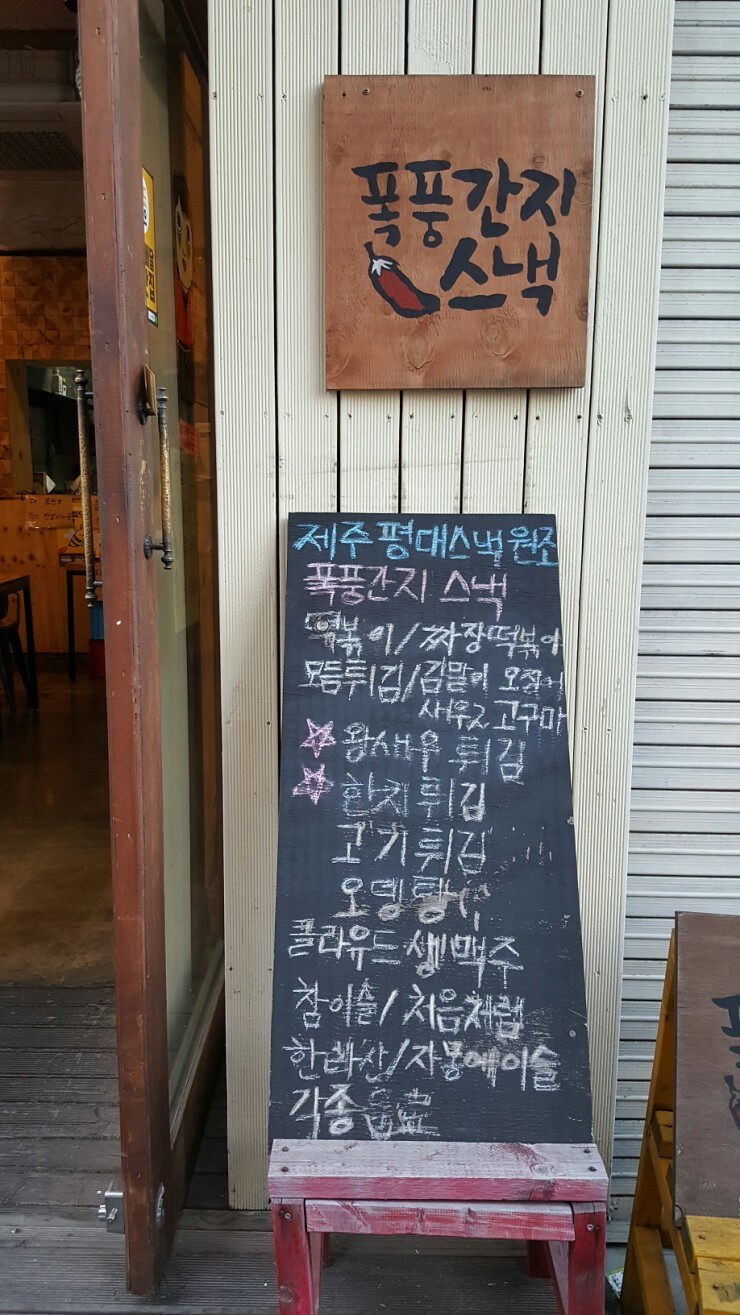 폭풍간지
스낵
제주 평대스낵 원조
폭풍간지 스낵
떡볶이/짜장떡볶이
모듬튀김/김말이 오징어
새우 고구마
왕새우 튀김
한치튀김
고기튀김
오뎅탕
클라우드 생맥주
참이슬/처음처럼
한라산/자몽에이슬
각종음료